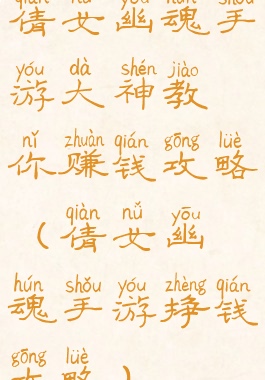 qiàn nǚ yōu hún shǒu
倩女幽魂手
yóu dà shén jiào
游大神教
nǐ zhuàn qián gōng lüè
你赚钱攻略
qiàn nǚ yōu
（倩女幽
hún shǒu yóu zhèng qián
魂手游挣钱
gōng lüè
攻略）